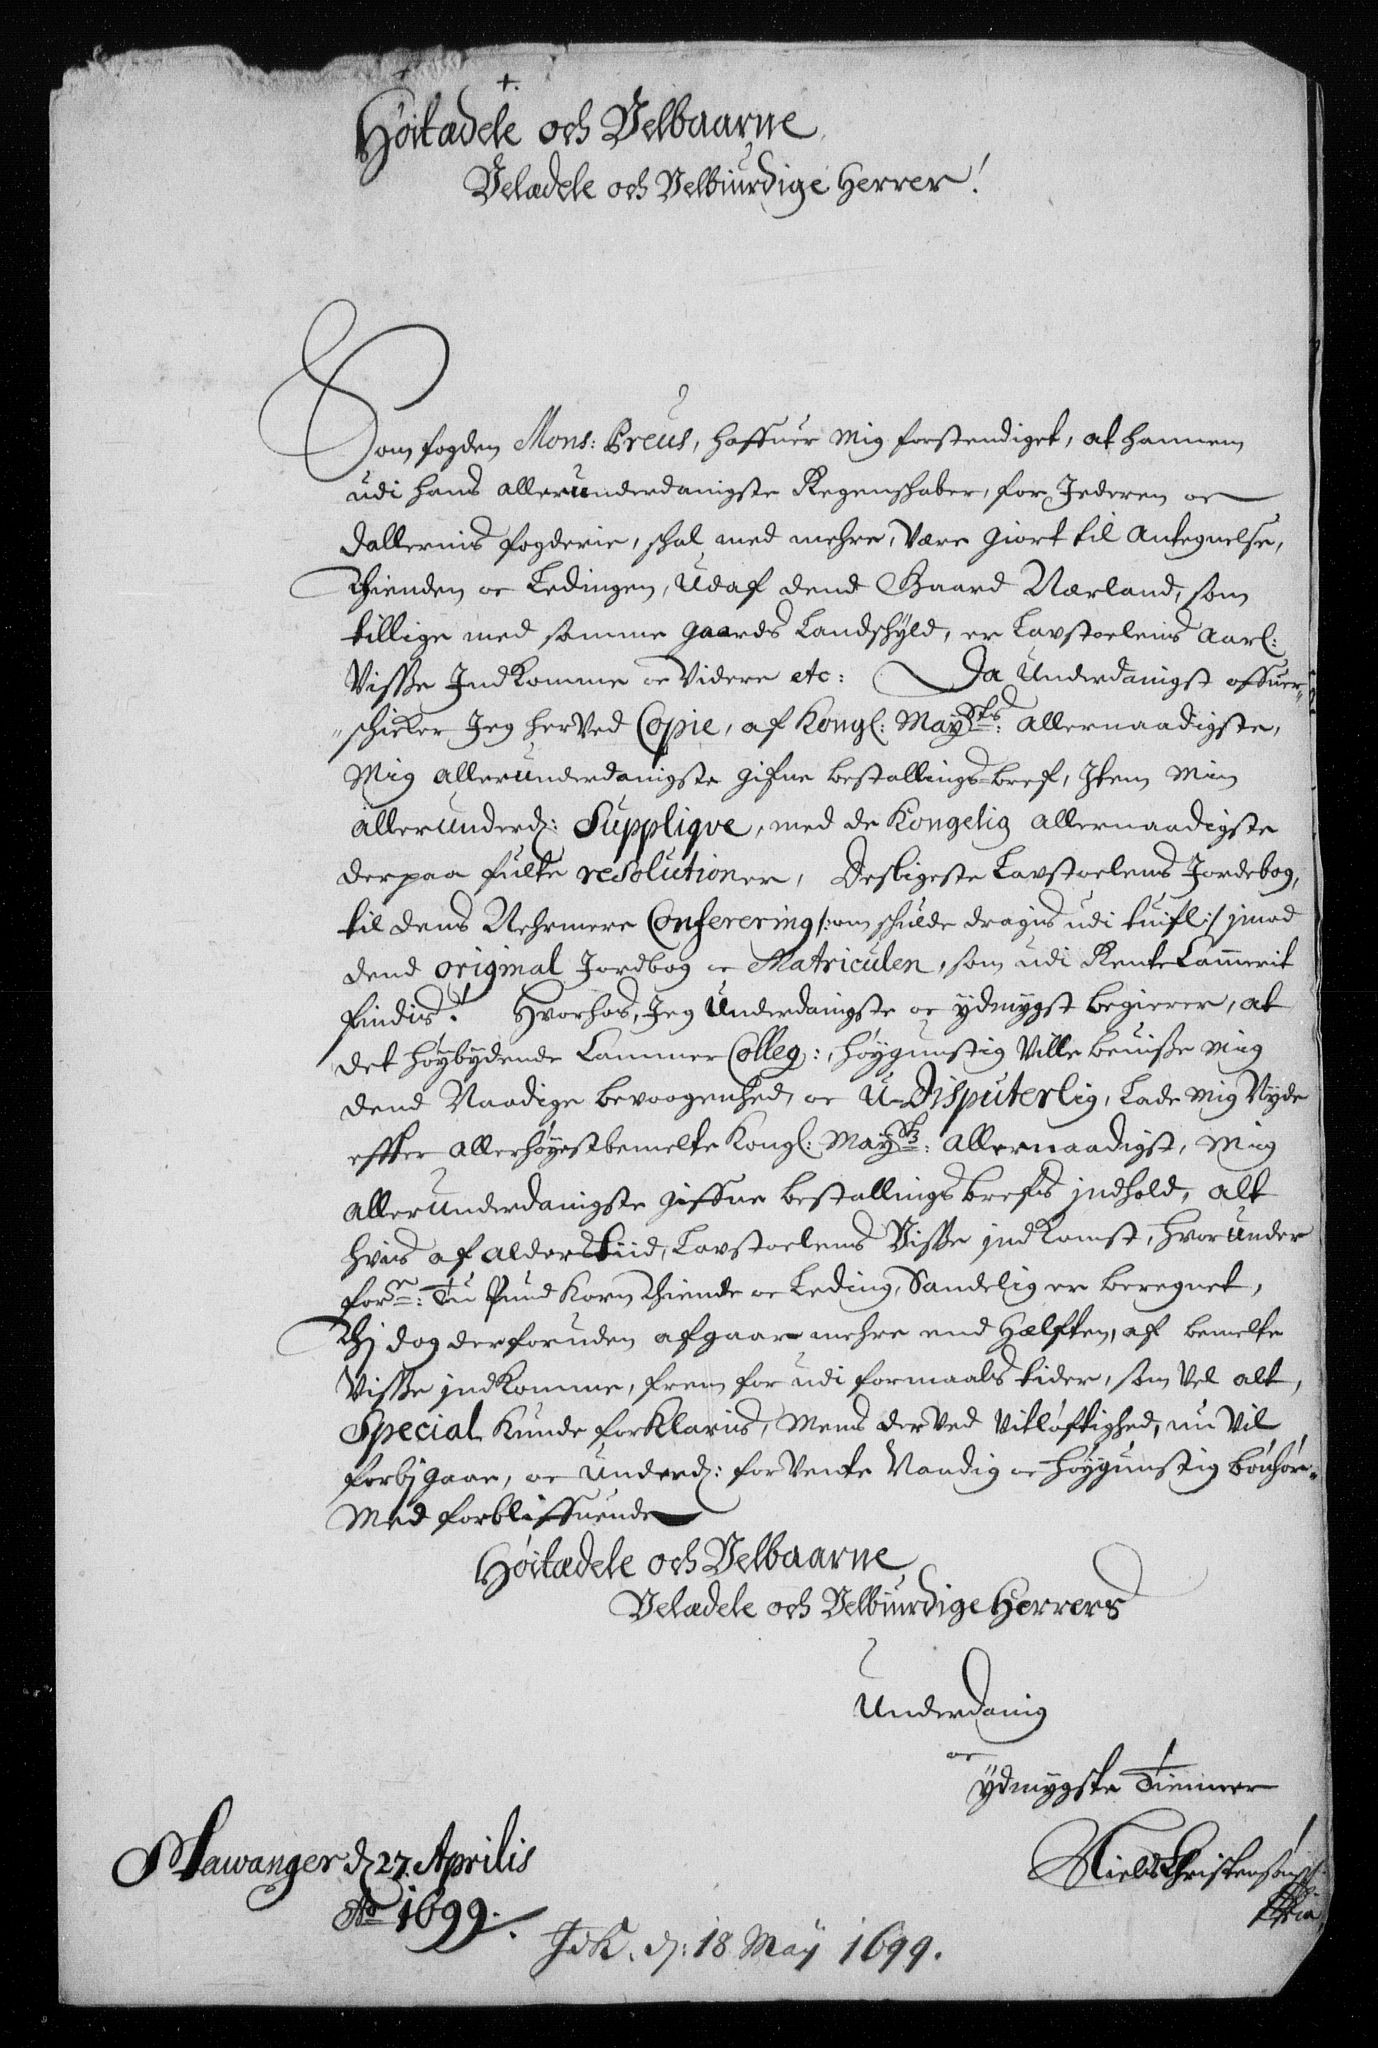 Höitædele och Velbaarne
Velædele och Velbiurdige Herrer!
Som fogden Mons: Preus, haffuer mig forstendiget, at hannem
udi hans allerunderdanigste Regenschaber, for Jederen oc
dallernis fogderie, schal med mehre, være giort til Antegnelse,
Thienden oc Ledingen, udaf dend Gaard Nærland, som
tillige med samme gaards Landschyld, er Lavstoelens Aarl:
Visse Indkomme oc videre etc: Da underdanigst offuer-
schicker Jeg herved Copie, af Kongl: Maytts: allernaadigste,
Mig allerunderdanigste gifne bestallings-bref, Item min
allerunderd: Supplique, med de Kongelig allernaadigste
derpaa fulte resolutioner, desligeste Lavstoelens Jordebog,
til dens Nehrmere Conferering /:om schulde dragis udi tuifl:/ imod
dend original Jordbog oc Matriculen, som udi Rente Cammerit
findis. Hvorhos, Jeg underdanigste oc ydmygst begierer, at
det høybydende Cammer Colleg:, høygunstig ville beuisse mig
dend Naadige bevaagenhed, oc U-Disputerlig, lade mig Nyde
effter allerhøyestbemelte Kongl: Maytz: allernaadigst, Mig
allerunderdanigste giffne bestallings brefs indhold, alt
hvis af alders tiid, Lavstoelens Visse indkomst, hvorunder
forne: Tu Pund Korn Thiende oc Leding, Sandelig er beregnet,
Thj dog derforuden afgaar mehre end Hælften, af bemelte
Visse indkomme, frem for udi formaals tider, som vel alt,
Special kunde forklaris, Mens derved vitløftighed, nu vil
forbj gaae, oc underd: forvente Naadig oc høygunstig bønhør-
Med forbliffuende
Höitædele och Velbaarne
Velædele och Velbiurdige Herrers
Underdanig
oc
ydmygste Tienner
Niels Christensøn
Stawanger d 27. Aprilis
Ao 1699.
Indk. d: 18 May 1699.